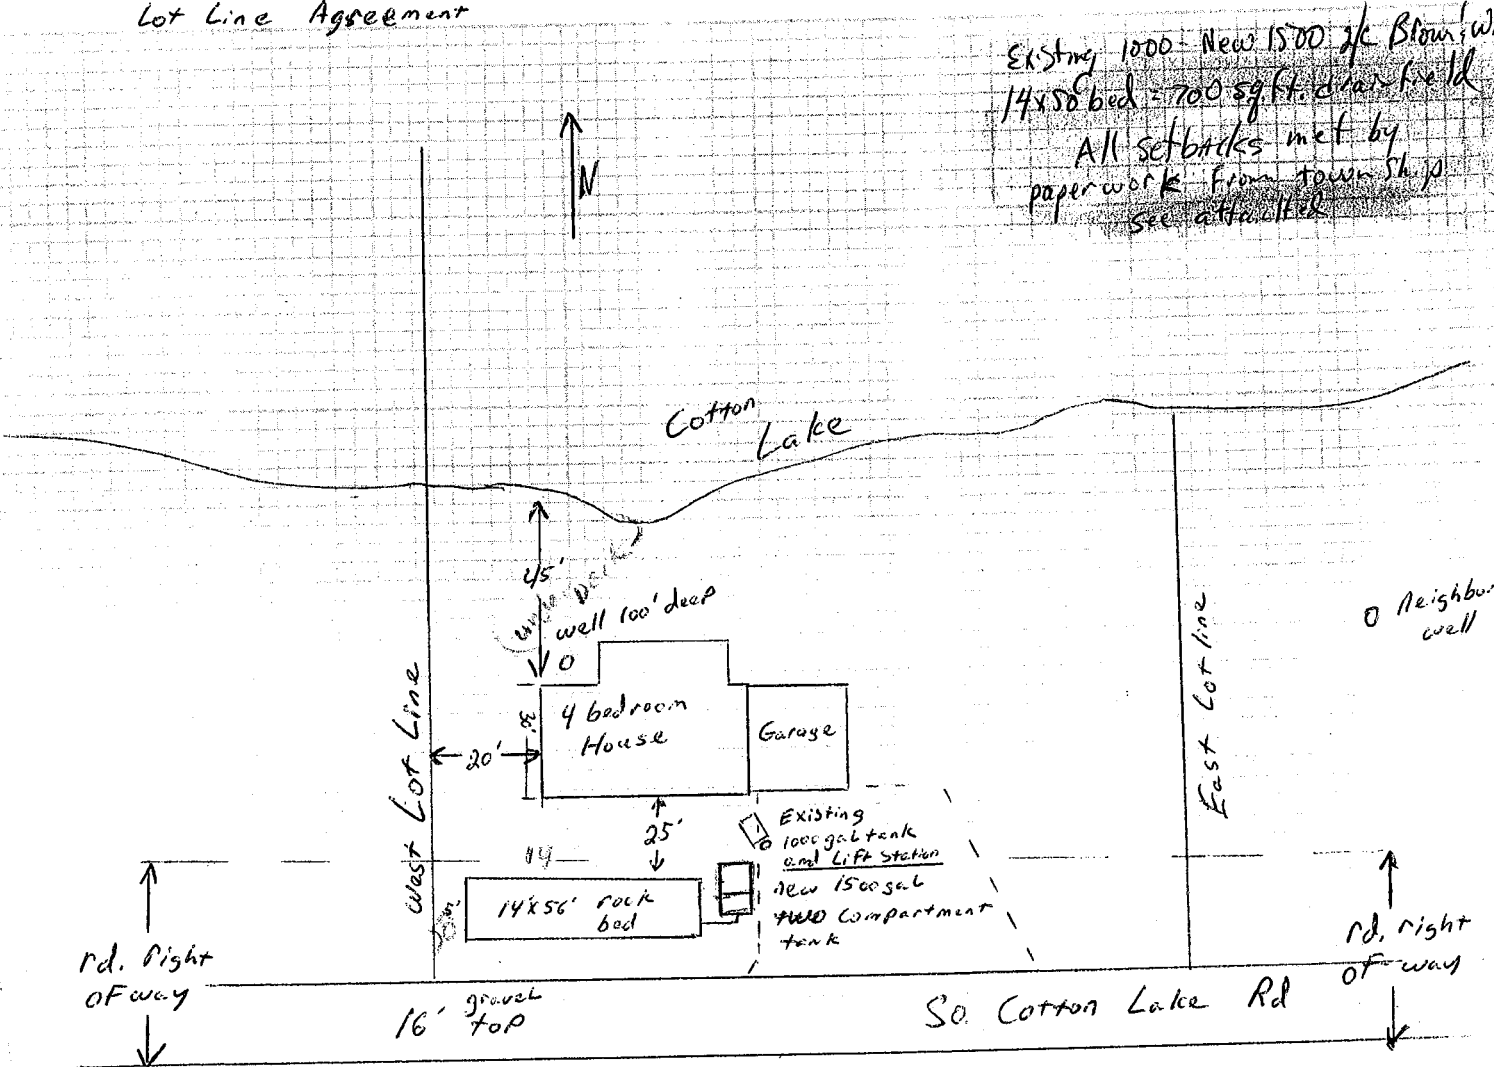 Lot Line Agreement
Existing 1000 - New 1500 2/c Brown
14x50 bed = 700 sq ft. drainfield
All setbacks met by
paperwork from township
see attached
N
Cotton
Lake
45'
well 100' deep
O Neighbor
well
4 bedroom
House
Garage
30'
20'
West Lot Line
East Lot line
25'
Existing
1000 gal tank
and Lift Station
new 1500 gal
two compartment
tank
14
14'x56' rock
bed
rd. right
of way
rd. right
of way
16' gravel
top
So. Cotton Lake Rd